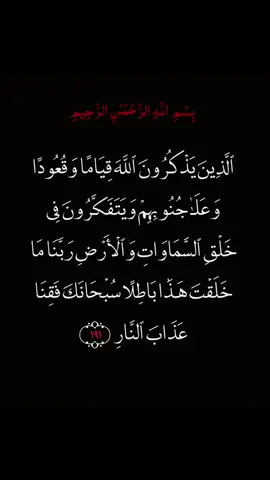 بِسْمِ اللَّهِ الرَّحْمَٰنِ الرَّحِيمِ
الَّذِينَ يَذْكُرُونَ اللَّهَ قِيَامًا وَقُعُودًا
وَعَلَىٰ جُنُوبِهِمْ وَيَتَفَكَّرُونَ فِي
خَلْقِ السَّمَاوَاتِ وَالْأَرْضِ رَبَّنَا مَا
خَلَقْتَ هَذَا بَاطِلًا سُبْحَانَكَ فَقِنَا
عَذَابَ النَّارِ ١٩١